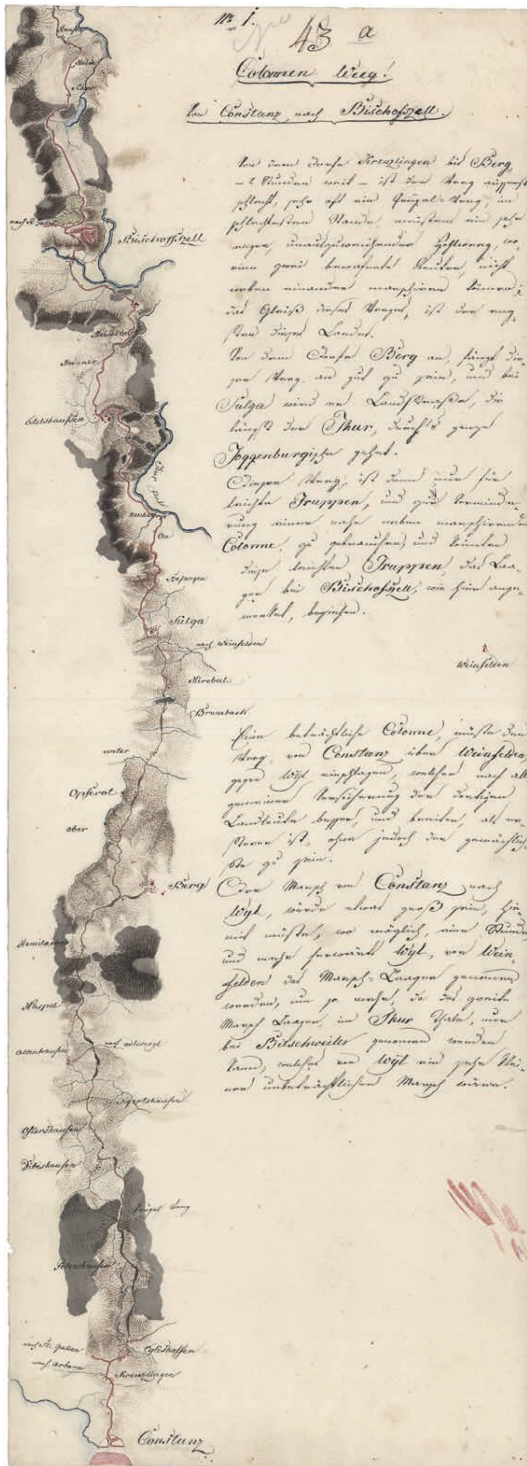 No 1.
43 a
Colonnen Weeg!
Von Constanz, nach Bischofszell.
Von dem Dorfe Kreuzlingen bis Berg
– 2 Stunden weit – ist der Weeg äusserst
schlecht, sehr oft ein Hügel-Weeg, im
schlechtesten Stande, meistens ein sehr
enger, unauszuweichender Hohlweeg, wo
kaum zwei bewafnete Reuter, nicht
neben einander marschieren können;
das Gleis dieses Weeges, ist das eng-
ste dieses Landes.
Von dem Dorfe Berg an, fängt die-
ser Weeg an gut zu sein, und bei
Sulga wird er Landstrasse, die
längst der Thur, durch's ganze
Toggenburgische gehet.
Dieser Weeg, ist dann nur für
leichte Truppen, und zur Verminde-
rung einer nahe neben marschirenden
Colonne, zu gebrauchen, und könnten
diese leichten Truppen, das Laa-
ger bei Bischofszell, wie hier ange-
merket, beziehen.
Weinfelden
Eine beträchtliche Colonne, müste den
Weeg, von Constanz über Weinfelden,
gegen Wyl einschlagen, welcher nach all-
gemeiner Versicherung der dortigen
Landleute besser, und breiter, als er-
sterer ist, ohne jedoch der gemächlich-
ste zu sein.
Der Marsch von Constanz nach
Wyl, würde etwas groß sein, hie-
mit müste, wo möglich, eine Stunde
und mehr herwärts Wyl, von Wein-
felden das Marsch-Laager genommen
werden, um so mehr, da das zweite
Marsch Laager, im Thur Thale, nur
bei Bütschweiler genommen werden
kann, welches von Wyl ein sehr klei-
ner unbeträchtlicher Marsch wäre.
nach St. Gallen
Bischoffszell
Heidelberg
Thur
Au
Sulga
nach Weinfelden
Mirebul
Brumbach
unter
Opferet
ober
Berg
Altenhausen
Siegertshausen
Ostershausen
Dibishausen
Hügel Weeg
nach St. Gallen
nach Arbon
Egelshoffen
Kreuzlingen
Constanz